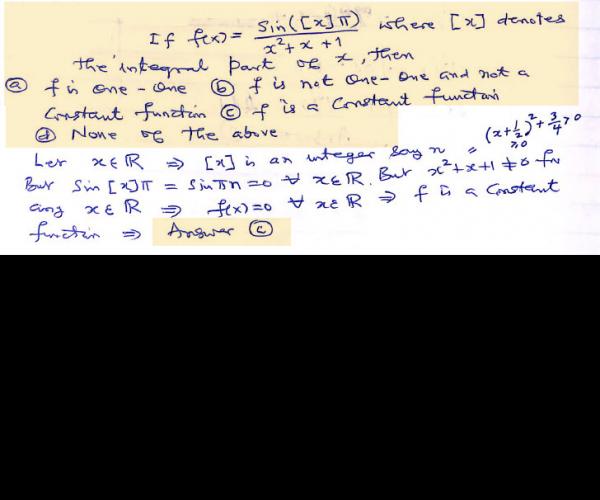 If f(x) = sin([x]π) / x²+x+1 where [x] denotes
the integral part of x, then
(a) f is one-one (b) f is not one-one and not a
Constant function (c) f is a constant function
(d) None of the above.
Let x∈ℝ ⇒ [x] is an integer say n = (x+1/2)² + 3/4 > 0
≥0
But sin[x]π = sinπn = 0 ∀ x∈ℝ. But x²+x+1 ≠ 0 for
any x∈ℝ ⇒ f(x)=0 ∀ x∈ℝ ⇒ f is a constant
function ⇒ Answer (c)